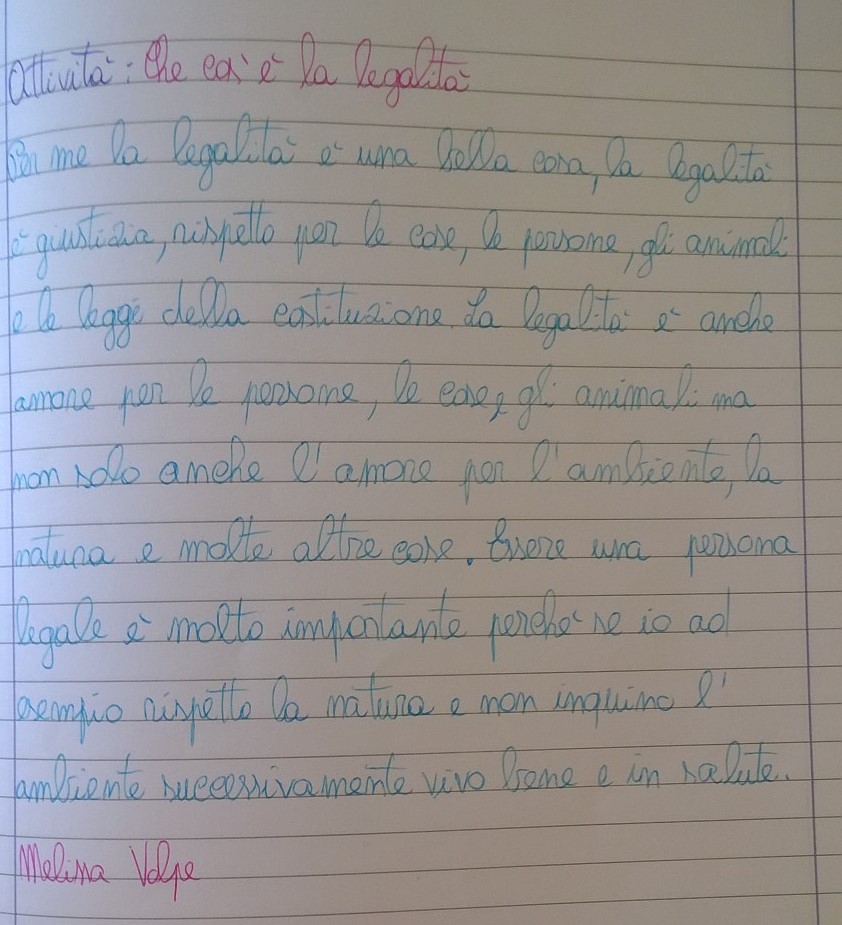 Attività: Che cos'è la legalità
Per me la legalità è una bella cosa, la legalità
è giustizia, rispetto per le cose, le persone, gli animali
e le leggi della costituzione. La legalità è anche
amore per le persone, le cose, gli animali ma
non solo anche l'amore per l'ambiente, la
natura e molte altre cose. Essere una persona
legale è molto importante perché se io ad
esempio rispetto la natura e non inquino l'
ambiente successivamente vivo bene e in salute.
Melissa Volpe